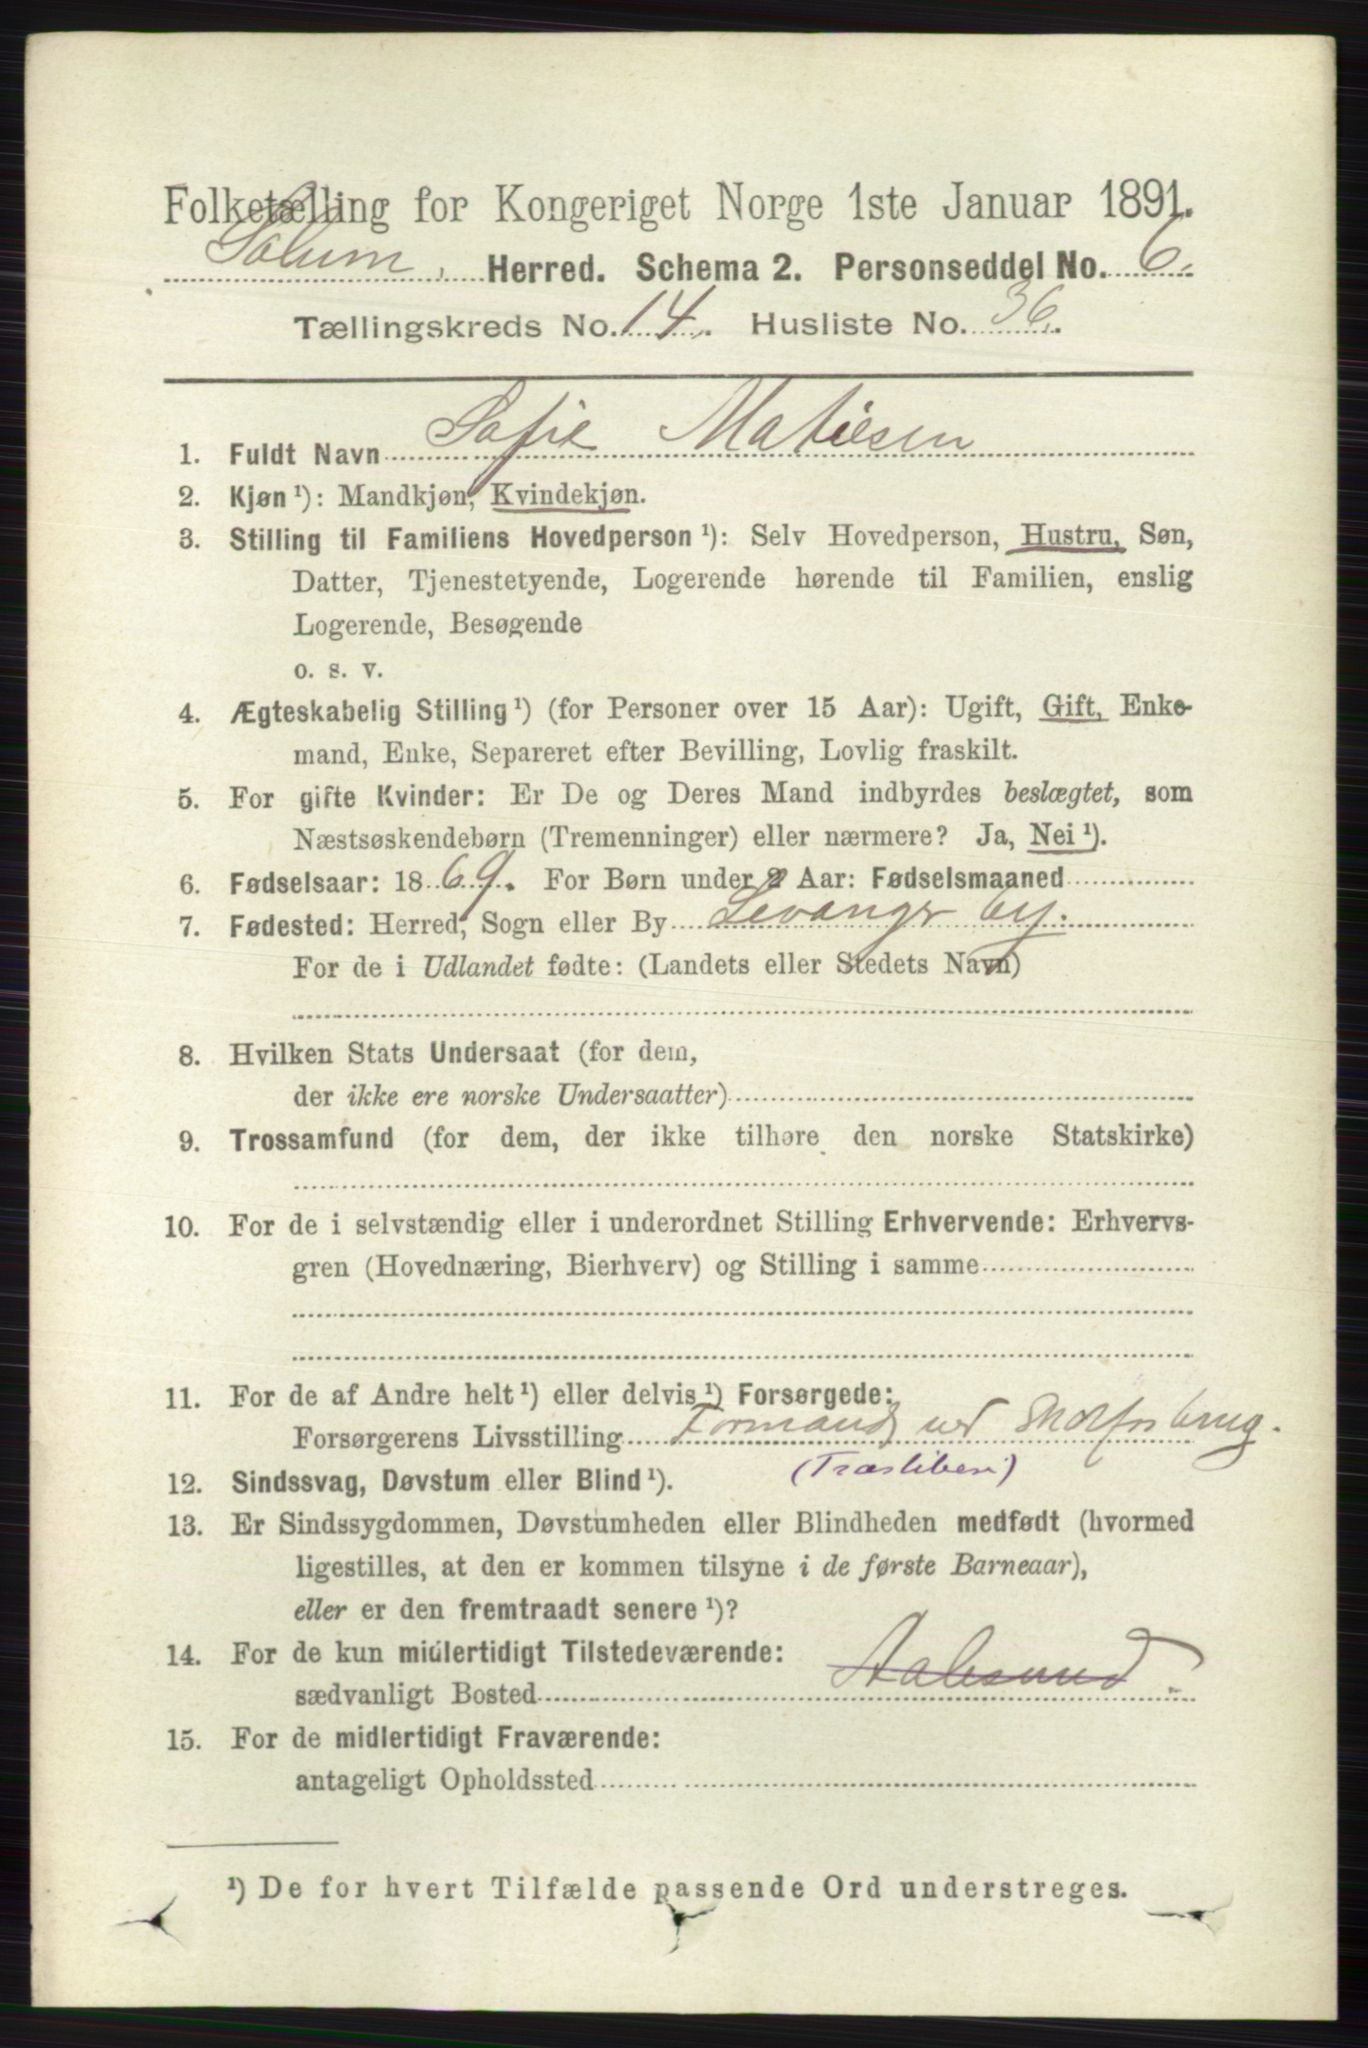 Folketælling for Kongeriget Norge 1ste Januar 1891.
Solum, Herred. Schema 2. Personseddel No. 6.
Tællingskreds No. 14. Husliste No. 36.
1. Fuldt Navn Sofie Matiesen
2. Kjøn ¹): Mandkjøn, Kvindekjøn.
3. Stilling til Familiens Hovedperson ¹): Selv Hovedperson, Hustru, Søn,
Datter, Tjenestetyende, Logerende hørende til Familien, enslig
Logerende, Besøgende
o. s. v.
4. Ægteskabelig Stilling ¹) (for Personer over 15 Aar): Ugift, Gift, Enke-
mand, Enke, Separeret efter Bevilling, Lovlig fraskilt.
5. For gifte Kvinder: Er De og Deres Mand indbyrdes beslægtet, som
Næstsøskendebørn (Tremenninger) eller nærmere? Ja, Nei ¹).
6. Fødselsaar: 1869. For Børn under 2 Aar: Fødselsmaaned
7. Fødested: Herred, Sogn eller By Levanger by.
For de i Udlandet fødte: (Landets eller Stedets Navn)
8. Hvilken Stats Undersaat (for dem,
der ikke ere norske Undersaatter)
9. Trossamfund (for dem, der ikke tilhøre den norske Statskirke)
10. For de i selvstændig eller i underordnet Stilling Erhvervende: Erhvervs-
gren (Hovednæring, Bierhverv) og Stilling i samme
11. For de af Andre helt ¹) eller delvis ¹) Forsørgede:
Forsørgerens Livsstilling Formand ved
12. Sindssvag, Døvstum eller Blind ¹). (Træsliberi)
13. Er Sindssygdommen, Døvstumheden eller Blindheden medfødt (hvormed
ligestilles, at den er kommen tilsyne i de første Barneaar),
eller er den fremtraadt senere ¹)?
14. For de kun midlertidigt Tilstedeværende:
sædvanligt Bosted Aalesund.
15. For de midlertidigt Fraværende:
antageligt Opholdssted
¹) De for hvert Tilfælde passende Ord understreges.